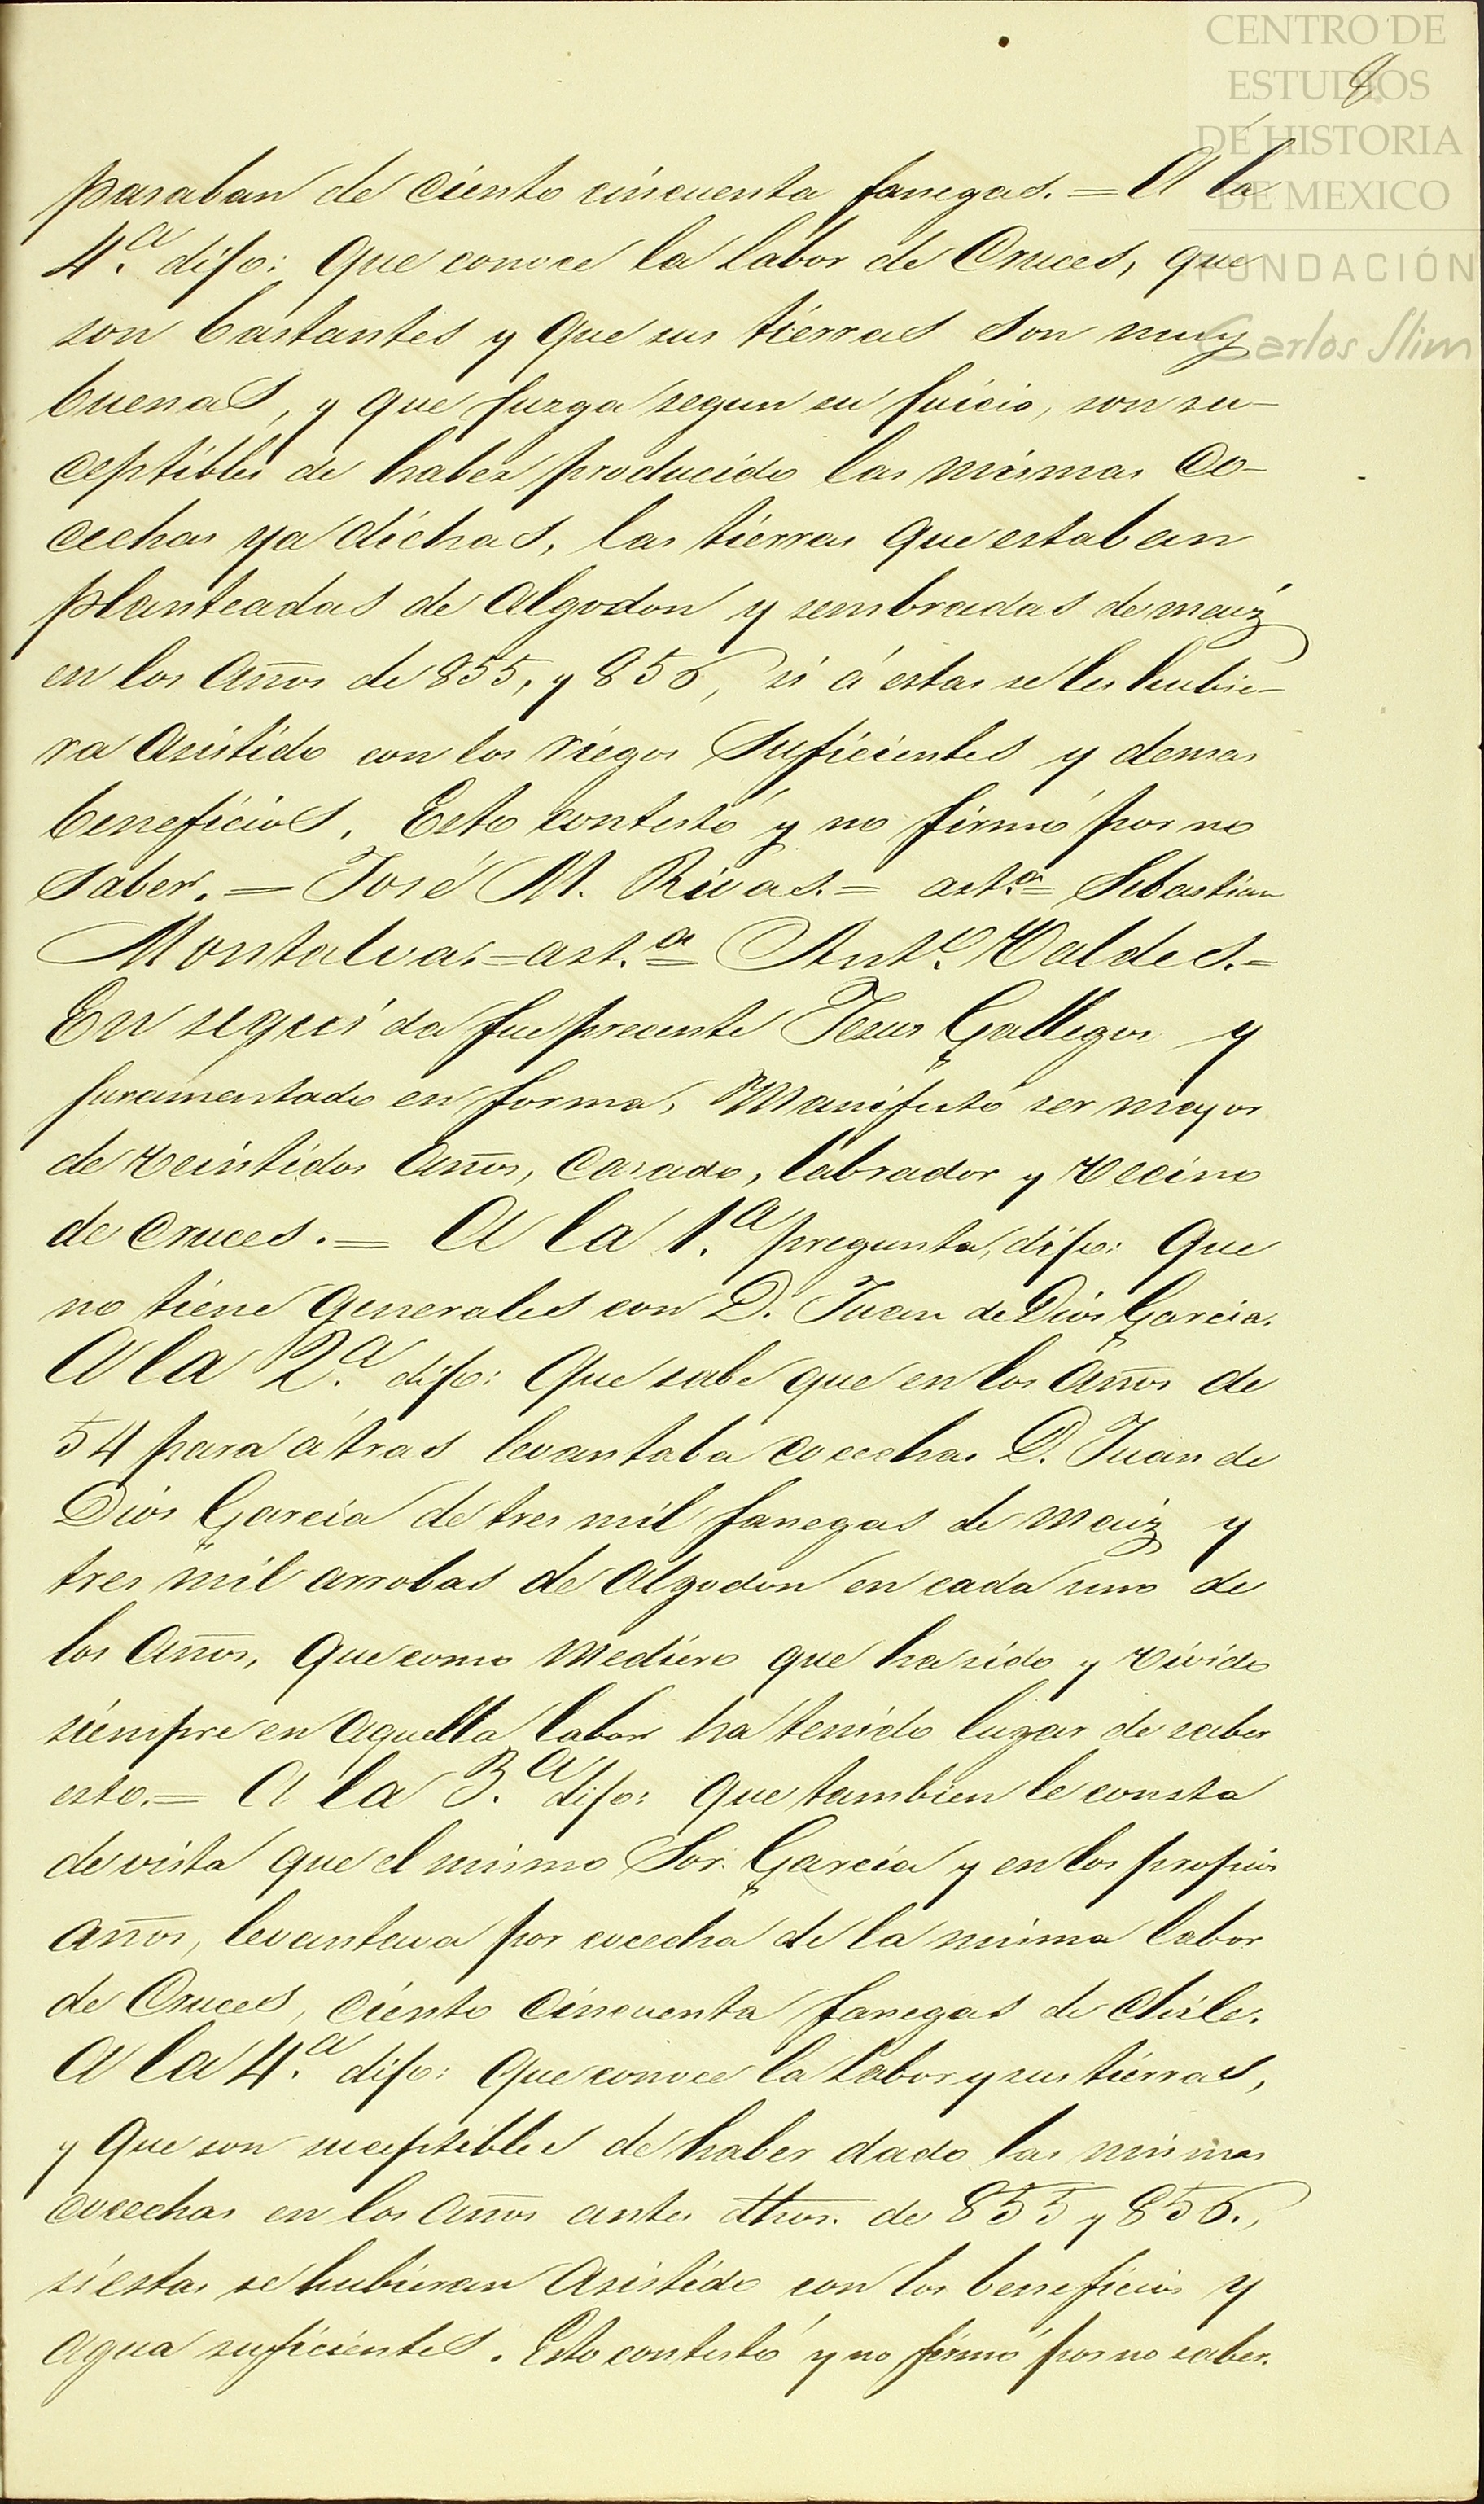 CENTRO DE
ESTUDIOS
DE HISTORIA
DE MEXICO
FUNDACIÓN
Carlos Slim
8
pasaban de ciento cincuenta fanegas. = A la
4.ª dijo: Que conoce la labor de Cruces, que
son bastantes y que sus tierras son muy
buenas, y que juzga segun su juicio, son su-
ceptibles de haber producido las mismas Co-
cechas ya dichas, las tierras que estaban
planteadas de Algodon y sembradas de maiz
en los Años de 855, y 856, si á estas se les hubie-
ra Asistido con los riegos suficientes y demas
beneficios. Esto contestó y no firmó por no
saber. = José M. Rivas. = ast.ª = Sebastian
Montalva. = ast.ª = Ant.º Valdes. =
En seguida fue precente Jesus Gallegos y
juramentado en forma, Manifestó ser mayor
de veintidos Años, Casado, labrador y vecino
de Cruces. = A la 1.ª pregunta, dijo: Que
no tiene Generales con D. Juan de Dios Garcia.
A la 2.ª dijo: Que sabe que en los Años de
54 para átras levantaba cocechas D. Juan de
Dios Garcia de tres mil fanegas de maiz y
tres mil arrobas de Algodon en cada uno de
los Años, Que como Mediero que ha sido y vivido
siempre en aquella labor ha tenido lugar de saber
esto. = A la 3.ª dijo: Que tambien le consta
de vista que el mismo Sor. Garcia y en los propios
años, levantava por cocecha de la misma labor
de Cruces, Ciento Cincuenta fanegas de Chile.
A la 4.ª dijo: Que conoce la Labor y sus tierras,
y Que son suceptibles de haber dado las mismas
cocechas en los Años antes dhos. de 855 y 856.,
si estas se hubieran Asistido con los beneficios y
agua suficientes. Esto contestó y no firmó por no saber.